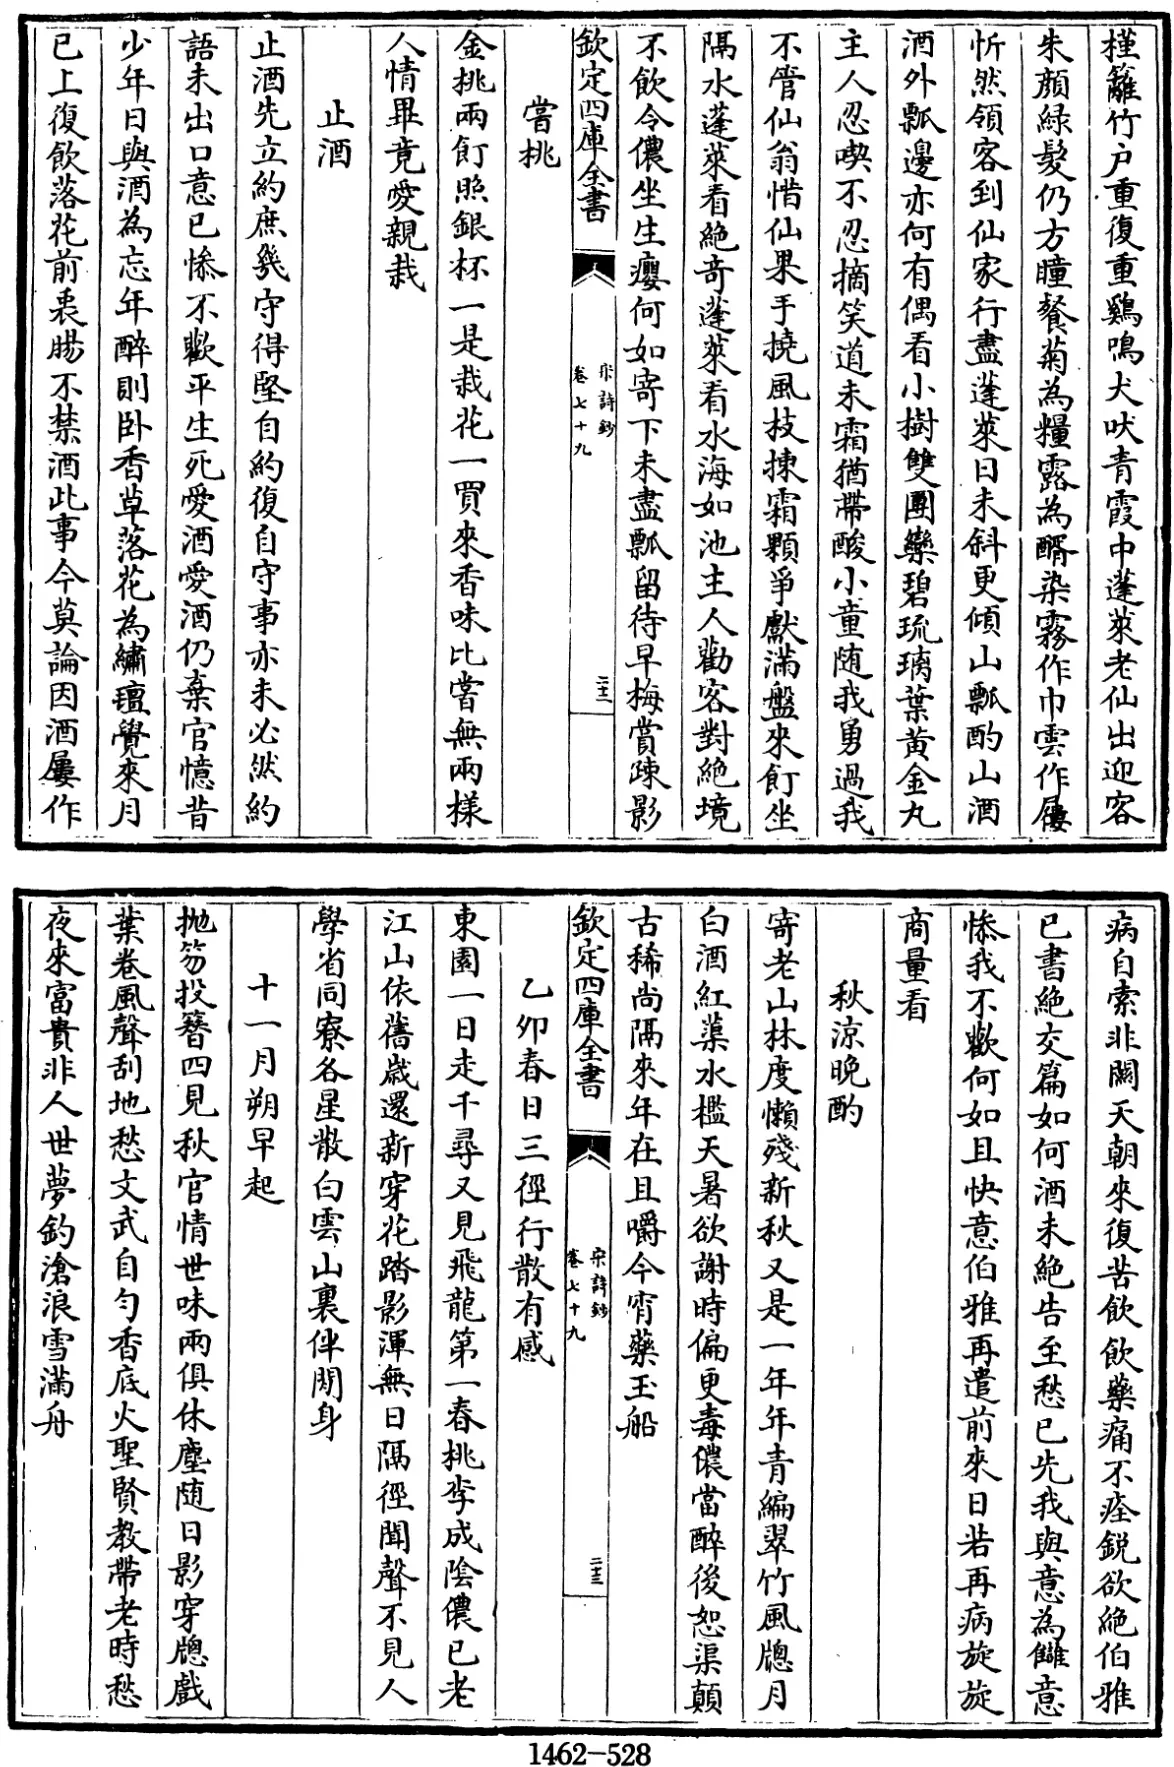 槿籬竹戶重復重鷄鳴犬吠青霞中蓬萊老仙出迎客
朱顏緑髮仍方瞳餐菊為糧露為醑染霧作巾雲作屨
忻然領客到仙家行盡蓬萊日未斜更傾山瓢酌山酒
酒外瓢邊亦何有偶看小樹雙團欒碧琉璃葉黃金丸
主人忍喫不忍摘笑道未霜猶帶酸小童随我勇過我
不管仙翁惜仙果手撓風枝揀霜顆爭獻滿盤來飣坐
隔水蓬萊看絶奇蓬萊看水海如池主人勸客對絶境
不飲令儂坐生癭何如寄下未盡瓢留待早梅賞疎影
欽定四庫全書
宋詩鈔
卷七十九
二十二
嘗桃
金桃兩飣照銀杯一是栽花一買來香味比嘗無兩樣
人情畢竟愛親栽
止酒
止酒先立約庶幾守得堅自約復自守事亦未必然約
語未出口意已慘不歡平生死愛酒愛酒仍棄官憶昔
少年日與酒為忘年醉則卧香草落花為繡氊覺來月
已上復飲落花前衰腸不禁酒此事今莫論因酒屢作
病自索非關天朝來復苦飲飲藥痛不痊鋭欲絶伯雅
已書絶交篇如何酒未絶告至愁已先我與意為讎意
慘我不歡何如且快意伯雅再遣前來日若再病旋旋
商量看
秋涼晚酌
寄老山林度懶殘新秋又是一年年青編翠竹風牕月
白酒紅蕖水檻天暑欲謝時偏更毒儂當醉後恕渠顛
古稀尚隔來年在且嚼今宵藥玉船
欽定四庫全書
宋詩鈔
卷七十九
二十三
乙卯春日三徑行散有感
東園一日走千尋又見飛龍第一春桃李成陰儂已老
江山依舊嵗還新穿花踏影渾無日隔徑聞聲不見人
學省同寮各星散白雲山裏伴閒身
十一月朔早起
抛笏投簪四見秋官情世味兩俱休塵随日影穿牕戲
葉卷風聲刮地愁文武自勻香底火聖賢教帶老時愁
夜來富貴非人世夢釣滄浪雪滿舟
1462-528